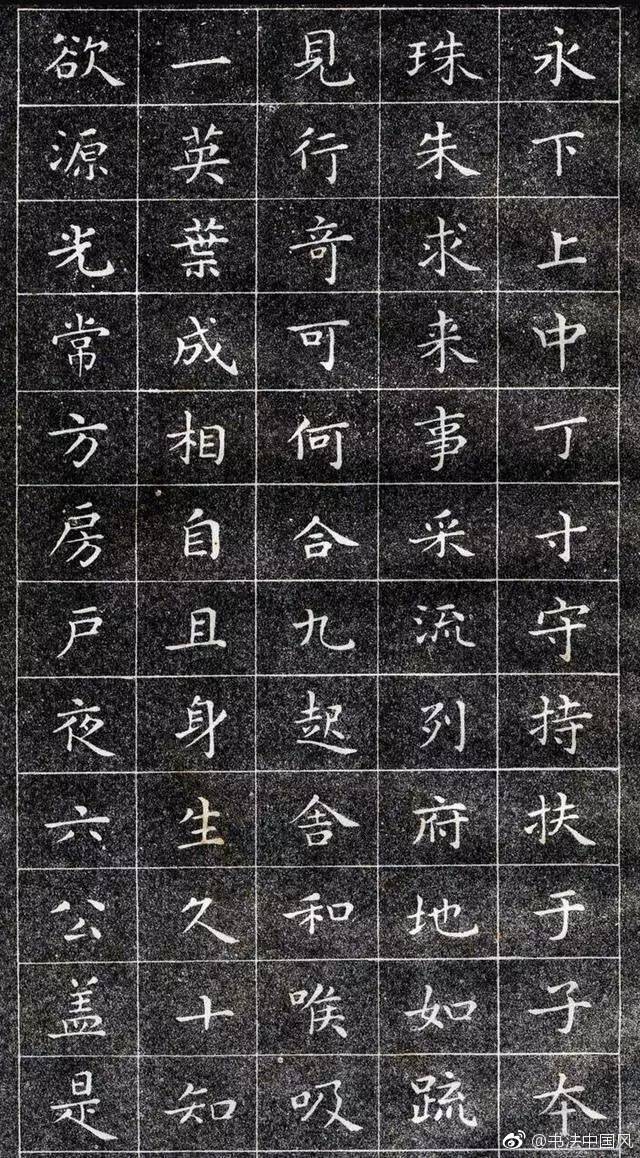 永下上中丁寸守持扶于子本
珠朱求来事采流列府地如䟽
見行竒可何合九起舎和喉吸
一英葉成相自且身生久十知
欲源光常方房戸夜六公盖是
@书法中国风